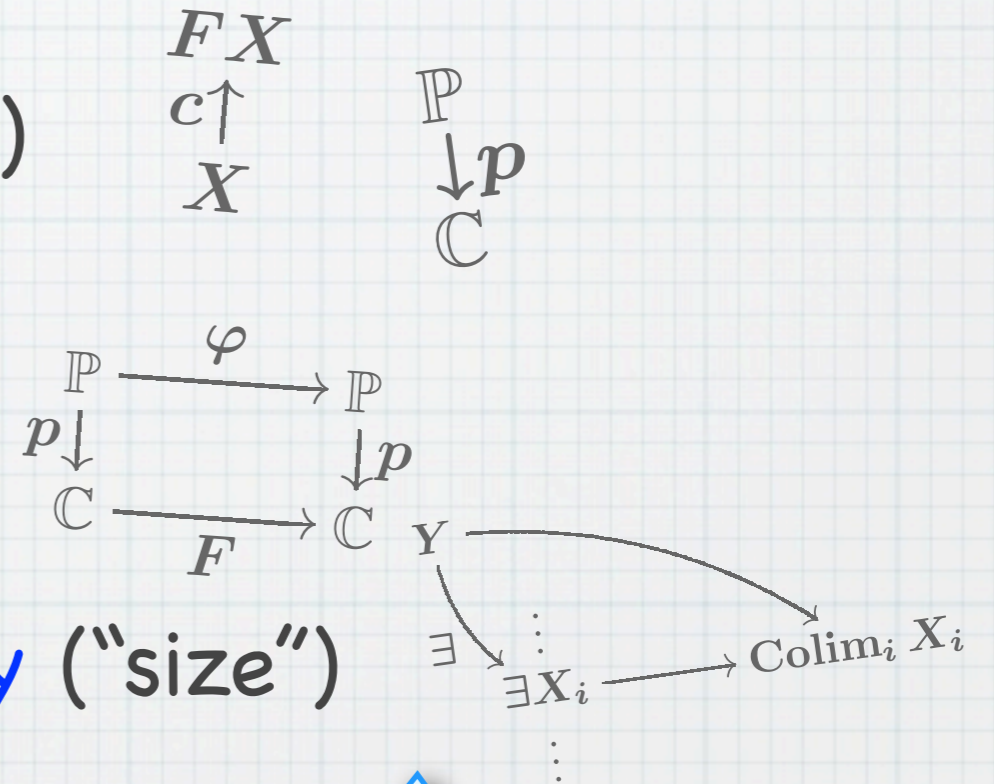 FX
c
X
)
ℙ
p
ℂ
φ
ℙ ℙ
p p
ℂ ℂ
F
Y
∃
∃Xᵢ
Colimᵢ Xᵢ
y ("size")